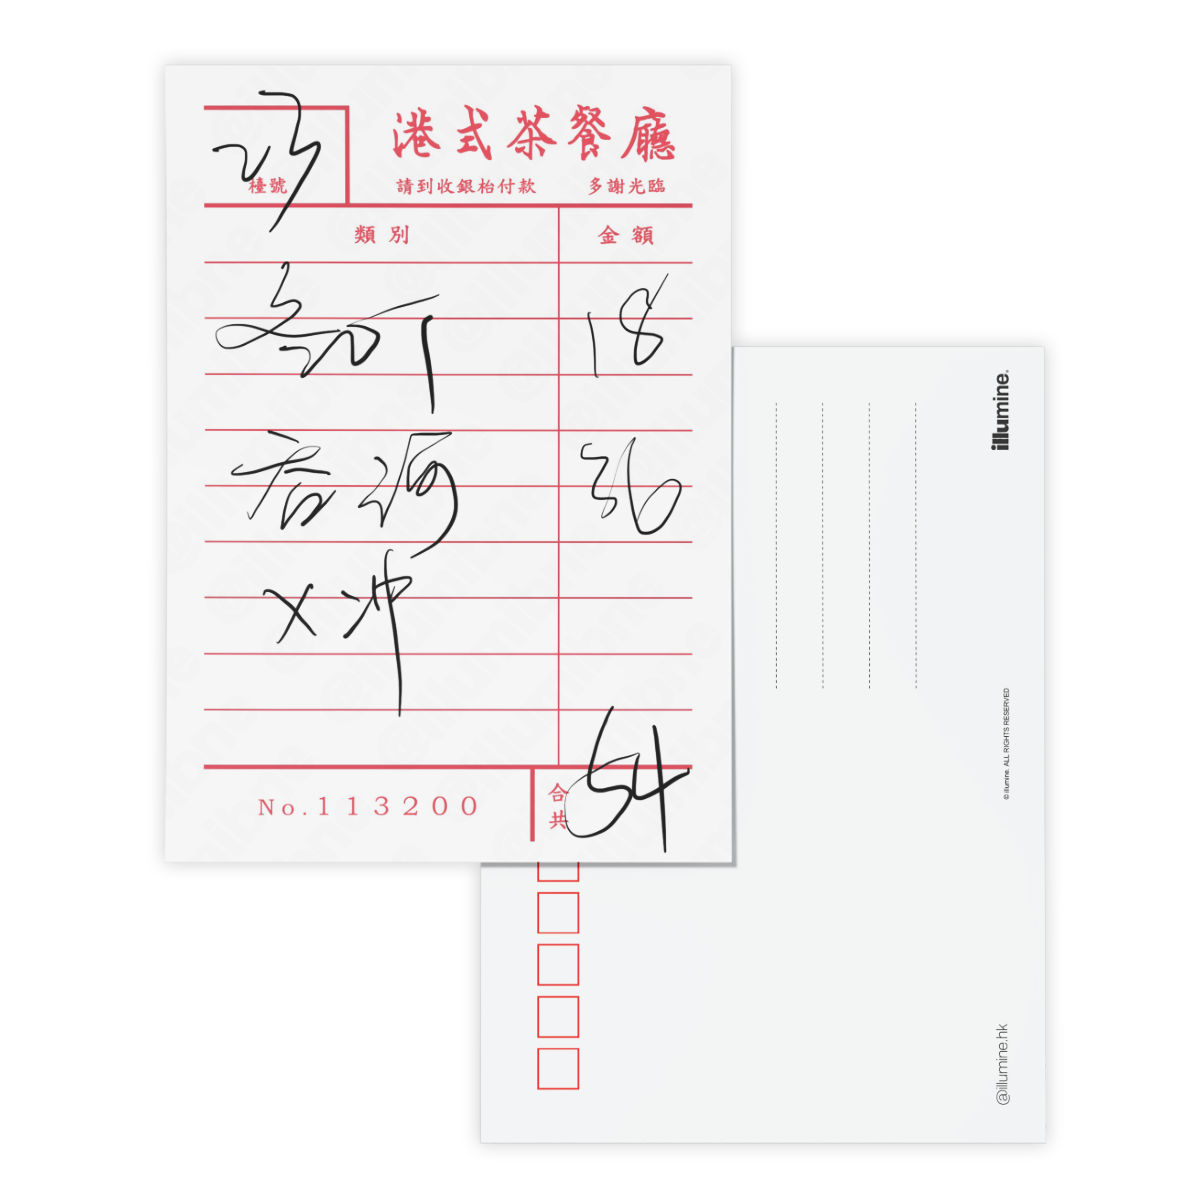 23
港式茶餐廳
檯號
請到收銀枱付款 多謝光臨
類別 金額
18
36
X冲
No.113200
合共 54
illumine.
© illumine. ALL RIGHTS RESERVED
@illumine.hk